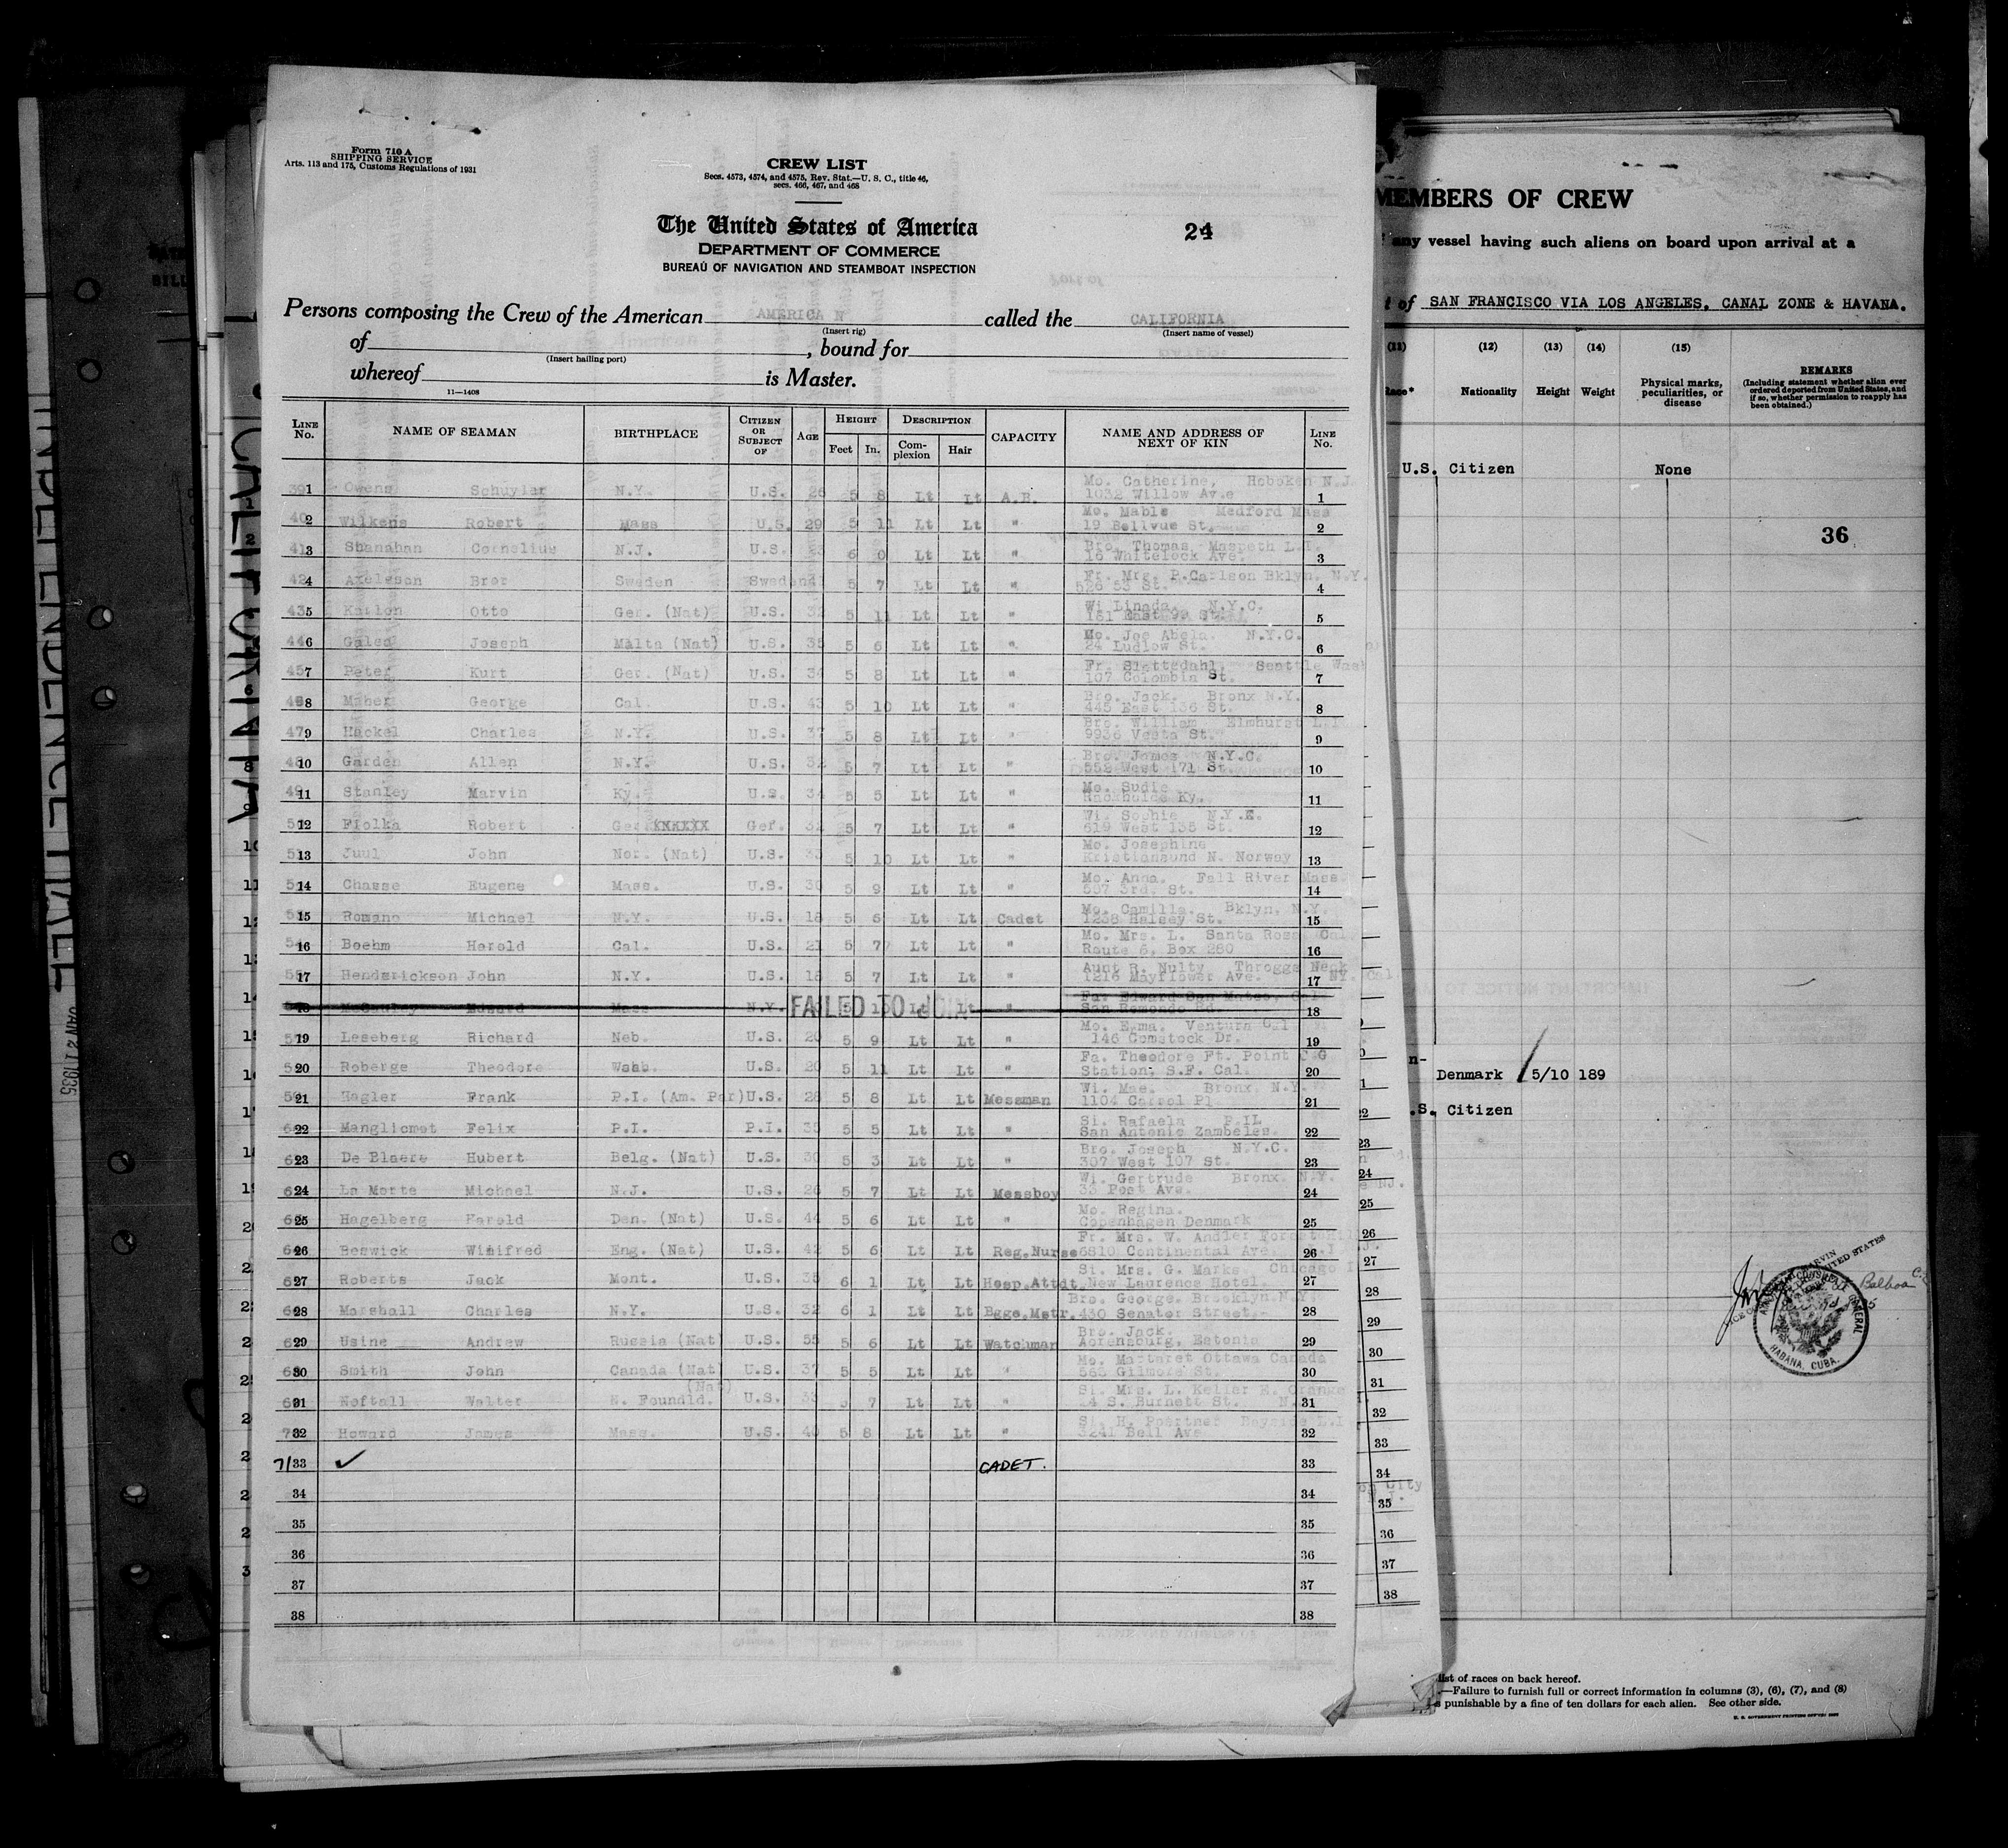 Form 710 A
SHIPPING SERVICE
Arts. 113 and 175, Customs Regulations of 1931
CREW LIST
Secs. 4573, 4574, and 4575, Rev. Stat.—U. S. C., title 46,
secs. 466, 467, and 468
The United States of America
DEPARTMENT OF COMMERCE
BUREAU OF NAVIGATION AND STEAMBOAT INSPECTION
24
Persons composing the Crew of the American AMERICA N called the CALIFORNIA
(Insert rig) (Insert name of vessel)
of , bound for
(Insert hailing port)
whereof is Master.
11—1408
LINE No. NAME OF SEAMAN BIRTHPLACE CITIZEN OR SUBJECT OF AGE HEIGHT Feet In. DESCRIPTION Complexion Hair CAPACITY NAME AND ADDRESS OF NEXT OF KIN LINE No.
1 Owens Schuyler N.Y. U.S. 26 5 8 Lt Lt A.B. Mo. Catherine, Hoboken N.J. 1032 Willow Ave 1
2 Wilkens Robert Mass U.S. 29 5 11 Lt Lt " Mo. Mable Medford Mass 19 Bellvue St. 2
3 Shanahan Cornelius N.J. U.S. 6 0 Lt Lt " Bro. Thomas Maspeth L.I. 16 Whitelock Ave. 3
4 Axelsson Bror Sweden Sweden 5 7 Lt Lt " Fr. Mrs. P.Carlson Bklyn. N.Y. 526 53 St. 4
5 Karlon Otto Ger. (Nat) U.S. 32 5 11 Lt Lt " Wi Linada. N.Y.C. 161 East 99 St. 5
6 Galea Joseph Malta (Nat) U.S. 35 5 6 Lt Lt " Mo. Joe Abela. N.Y.C. 24 Ludlow St. 6
7 Peter Kurt Ger. (Nat) U.S. 34 5 8 Lt Lt " Fr. Slettedahl, Seattle Wash 107 Colombia St. 7
8 Maher George Cal. U.S. 43 5 10 Lt Lt " Bro. Jack. Bronx N.Y. 445 East 136 St. 8
9 Hackel Charles N.Y. U.S. 37 5 8 Lt Lt " Bro. William Elmhurst L.I. 9936 Vesta St. 9
10 Garden Allen N.Y. U.S. 32 5 7 Lt Lt " Bro. James N.Y.C. 552 West 171 St. 10
11 Stanley Marvin Ky. U.S. 34 5 5 Lt Lt " Mo. Sudie Ky. 11
12 Fiolka Robert Ger XXXXXX Ger. 32 5 7 Lt Lt " Wi. Sophie 619 West 135 St. 12
13 Juul John Nor. (Nat) U.S. 35 5 10 Lt Lt " Mo. Josephine Kristiansund N. Norway 13
14 Chasse Eugene Mass. U.S. 30 5 9 Lt Lt " Mo. Anna. Fall River Mass. 507 3rd. St. 14
15 Romano Michael N.Y. U.S. 18 5 6 Lt Lt Cadet Mo. Camilla. Bklyn, N.Y. 1238 Halsey St. 15
16 Boehm Harold Cal. U.S. 21 5 7 Lt Lt " Mo. Mrs. L. Santa Rosa Cal. Route 6, Box 280 16
17 Henderickson John N.Y. U.S. 18 5 7 Lt Lt " Aunt R. Nulty Throggs Neck 1216 Mayflower Ave. NY. 17
18 McCauley Edward Mass N.Y. FAILED TO JOIN " Fa. Edward San Mateo, Cal. San Remondo Rd. 18
19 Leseberg Richard Neb. U.S. 20 5 9 Lt Lt " Mo. Emma. Ventura Cal 146 Comstock Dr. 19
20 Roberge Theodore Wash. U.S. 20 5 11 Lt Lt " Fa. Theodore Ft. Point C G Station, S.F. Cal. 20
21 Hagler Frank P.I. (Am. Par) U.S. 28 5 8 Lt Lt Messman Wi. Mae. Bronx. N.Y. 1104 Carrol Pl. 21
22 Manglicmot Felix P.I. P.I. 35 5 5 Lt Lt " Si. Rafaela P.IL San Antonio Zambeles. 22
23 De Blaere Hubert Belg. (Nat) U.S. 30 5 3 Lt Lt " Bro. Joseph N.Y.C. 307 West 107 St. 23
24 La Morte Michael N.J. U.S. 26 5 7 Lt Lt Messboy Wi. Gertrude Bronx. N.Y. 35 Post Ave. 24
25 Hagelberg Harold Den. (Nat) U.S. 44 5 6 Lt Lt " Mo. Regina. Copenhagen Denmark 25
26 Beswick Winifred Eng. (Nat) U.S. 42 5 6 Lt Lt Reg.Nurse Fr. Mrs. W. Andler 6810 Continental Ave. 26
27 Roberts Jack Mont. U.S. 35 6 1 Lt Lt Hosp.Attdt. Si. Mrs. G. Marks. Chicago New Laurence Hotel. 27
28 Marshall Charles N.Y. U.S. 32 6 1 Lt Lt Bgge.Mstr. Bro. George. Brooklyn.N.Y. 430 Senator Street. 28
29 Usine Andrew Russia (Nat) U.S. 55 5 6 Lt Lt Watchman Bro. Jack. Arensburg, Estonia 29
30 Smith John Canada (Nat) U.S. 37 5 5 Lt Lt " Mo. Margaret Ottawa Canada 565 Gilmore St. 30
31 Noftall Walter N. Foundld. (Nat) U.S. 33 7 Lt Lt " Si. Mrs. L. Keller E. Orange 14 S. Burnett St. 31
32 Howard James Mass. U.S. 5 8 Lt Lt " Si. H. Bayside L.I. 3241 Bell Ave 32
71 33 ✓ CADET. 33
34 34
35 35
36 36
37 37
38 38
CALIFORNIA
JAN 21 1935
MEMBERS OF CREW
any vessel having such aliens on board upon arrival at a
of SAN FRANCISCO VIA LOS ANGELES. CANAL ZONE & HAVANA.
(11) (12) (13) (14) (15)
Race* Nationality Height Weight Physical marks, peculiarities, or disease
REMARKS
(Including statement whether alien ever ordered deported from United States, and if so, whether permission to reapply has been obtained.)
U.S. Citizen None
36
Denmark 5/10 189
.S. Citizen
Balboa
HABANA, CUBA.
list of races on back hereof.
—Failure to furnish full or correct information in columns (3), (6), (7), and (8)
s punishable by a fine of ten dollars for each alien. See other side.